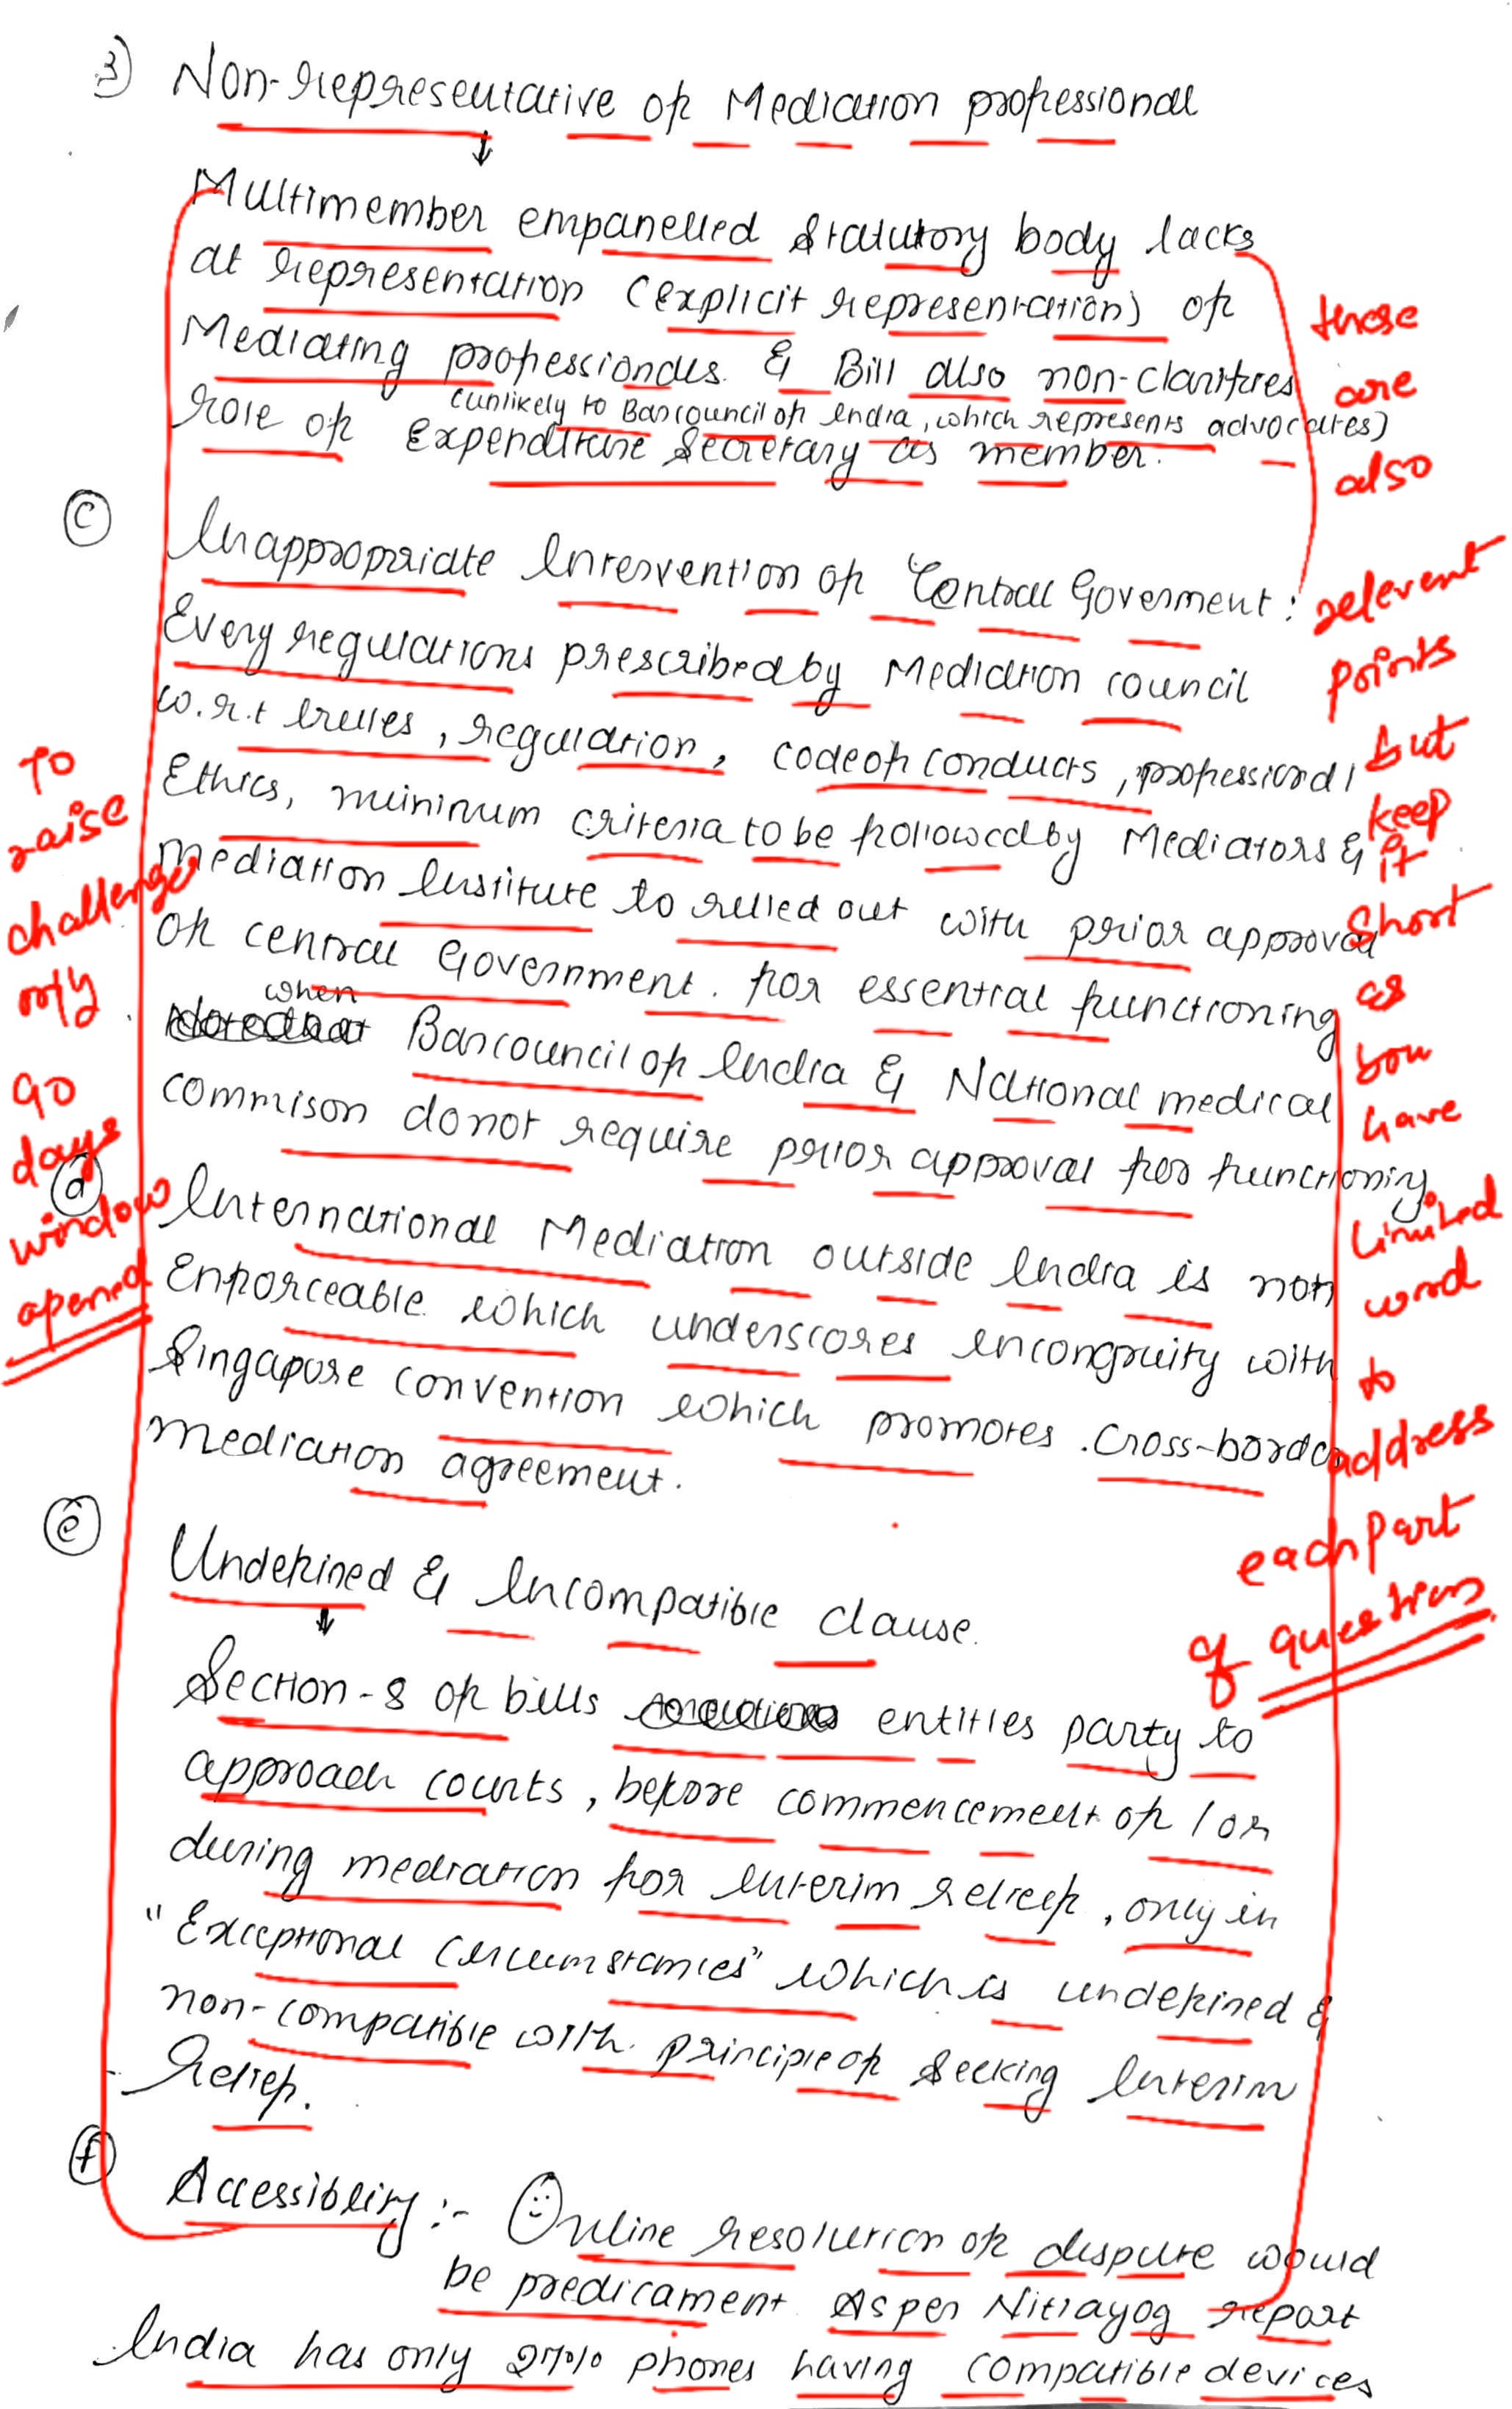 3) Non-representative of Mediation professional
↓
Multimember empanelled statutory body lacks
at representation (explicit representation) of
Mediating professionals & Bill also non-clarifies
(unlikely to Bar council of India, which represents advocates)
role of Expenditure Secretary as member.
these
are
also
relevent
points
but
keep
it
short
as
you
have
limited
word
to
address
each part
of question
(c) Inappropriate Intervention of Central Goverment:
Every regulations prescribed by Mediation council
w.r.t rules, regulation, code of conducts, professional
Ethics, mininum criteria to be followed by Mediators &
Mediation Institute to rulled out with prior approval
of central Government. for essential functioning
when
Bar council of India & National medical
commison do not require prior approval for functioning.
To
raise
challenge
only
90
days
window
opened
(d) International Mediation outside India is non
Enforceable which underscores incongruity with
Singapore convention which promotes cross-border
mediation agreement.
(e) Undefined & Incompatible clause.
↓
Section-8 of bills entitles party to
approach courts, before commencement of / or
during mediation for interim relief, only in
"Exceptional circumstances" which is undefined &
non-compatible with principle of seeking Interim
Relief.
(f) Accessiblity :- Online resolution of dispute would
be predicament As per Nitiayog report
India has only 27% phones having compatible devices